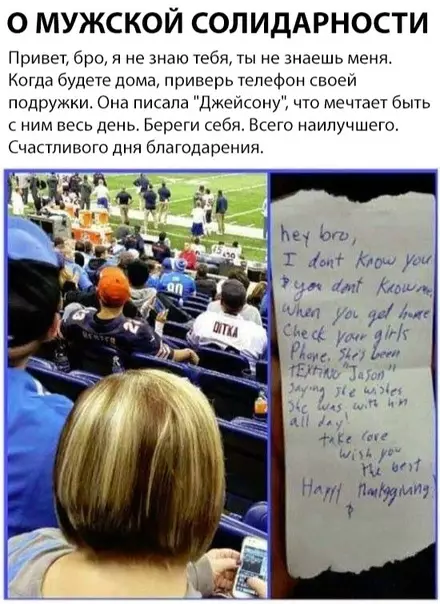 О МУЖСКОЙ СОЛИДАРНОСТИ
Привет, бро, я не знаю тебя, ты не знаешь меня.
Когда будете дома, приверь телефон своей
подружки. Она писала "Джейсону", что мечтает быть
с ним весь день. Береги себя. Всего наилучшего.
Счастливого дня благодарения.
90
DITKA
hey bro,
I dont know you
you dont know me,
when you get home
check your girls
Phone, She's been
TEXTING "Jason"
saying she wishes
she was with him
all day!
take care
wish you
the best
Happy Thanksgiving